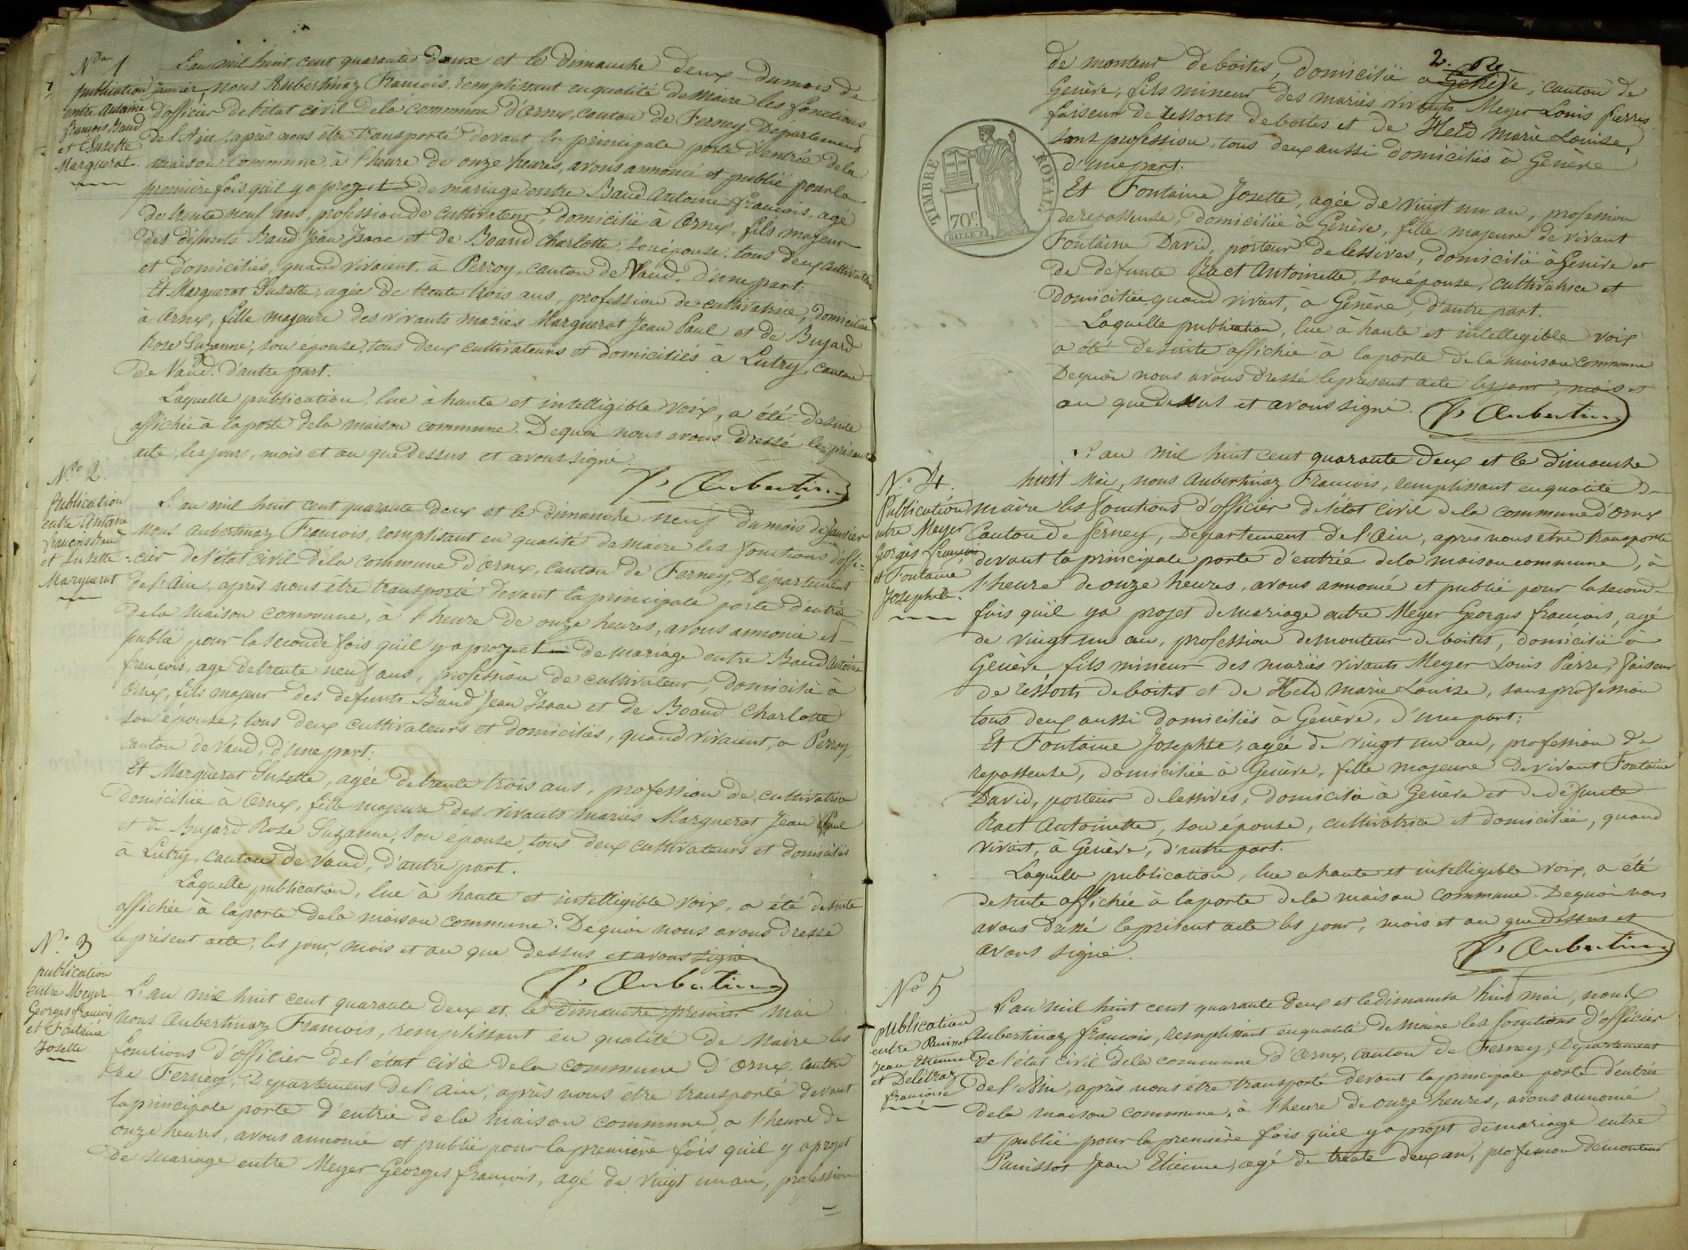 N° 1
publication
entre Antoine
François Baud
et Suzette
Marguerat
L'an mil huit cent quarante deux et le dimanche deux du mois de
janvier, nous Aubertinaz François, remplissant en qualité de Maire les fonctions
d'officier de l'état civil de la commune d'Ornex, canton de Ferney, Département
de l'Ain, après nous être transporté devant la principale porte d'entrée de la
maison commune à l'heure de onze heures, avons annoncé et publié pour la
première fois qu'il y a projet de mariage entre Baud Antoine françois, agé
de trente neuf ans, profession de cultivateur, domicilié à Ornex, fils majeur
des défunts Baud Jean Isaac et de Boand Charlotte, son épouse, tous deux cultivateurs
et domiciliés, quand vivaient, à Perroy, canton de Vaud. D'une part
Et Marguerat Suzette, agée de trente trois ans, profession de cultivatrice, domiciliée
à Ornex, fille majeure des vivants mariés Marguerat Jean Paul et de Bujard
Rose Suzanne, son epouse, tous deux cultivateurs et domiciliés à Lutry, canton
de Vaud. d'autre part.
Laquelle publication, lue à haute et intelligible voix, a été de suite
affichée à la porte de la maison commune. De quoi nous avons dressé le présent
acte, les jour, mois et an que dessus et avons signé.
F. Aubertinaz
N° 2.
Publication
entre Antoine
François Baud
et Suzette
Marguerat
L'an mil huit cent quarante deux et le dimanche neuf du mois de janvier
nous Aubertinaz François, remplissant en qualité de maire les fonctions d'offi-
-cier de l'état civil de la commune d'Ornex, canton de Ferney, Département
de l'Ain, après nous être transporté devant la principale porte d'entrée
de la maison commune, à l'heure de onze heures, avons annoncé et
publié pour la seconde fois qu'il y a projet de mariage entre Baud Antoine
françois, age de trente neuf ans, profession de cultivateur, domicilié à
Ornex, fils majeur des defunts Baud Jean Isaac et de Boand Charlotte
son épouse, tous deux cultivateurs et domiciliés, quand vivaient, à Perroy,
canton de Vaud, d'une part.
Et Marguerat Suzette, agée de trente trois ans, profession de cultivatrice
domiciliée à Ornex, fille majeure des vivants mariés Marguerat Jean Paul
et de Bujard Rose Suzanne, son epouse, tous deux cultivateurs et domiciliés
à Lutry, canton de Vaud, d'autre part.
Laquelle publication, lue à haute et intelligible voix, a été de suite
affichée à la porte de la maison commune. De quoi nous avons dressé
le présent acte, les jour, mois et an que dessus et avons signé
F. Aubertinaz
N° 3
publication
entre Meyer
Georges François
et Fontaine
Josette
L'an mil huit cent quarante deux et le dimanche premier mai
nous Aubertinaz François, remplissant en qualité de Maire les
fonctions d'officier de l'état civil de la commune d'Ornex canton
de Ferney, Département de l'Ain, après nous être transporté devant
la principale porte d'entrée de la maison commune, à l'heure de
onze heures, avons annoncé et publié pour la première fois qu'il y a projet
de mariage entre Meyer Georges françois, agé de vingt un an, profession
2.
de monteur de boites, domicilié à Genève, canton de
Genève, fils mineur des mariés vivants Meyer Louis Pierre
faiseur de ressorts de boites et de Held Marie Louise,
sans profession, tous deux aussi domiciliés à Genève
d'une part.
TIMBRE ROYAL
70 c.
Et Fontaine Josette, agée de vingt un an, profession
de repasseuse, domiciliée à Genève, fille majeure de vivant
Fontaine David, porteur de lessives, domicilié à Genève et
de defunte Ract Antoinette, son épouse, cultivatrice et
domiciliée quand vivait, à Genève, d'autre part.
Laquelle publication, lue à haute et intellegible voix
a été de suite affichée à la porte de la maison commune
De quoi nous avons dressé le present acte les jour, mois et
an que dessus et avons signé.
F. Aubertinaz
N° 4.
Publication
entre Meyer
Gorges François
et Fontaine
Josephte.
L'an mil huit cent quarante deux et le dimanche
huit Mai, nous Aubertinaz François, remplissant en qualité de
maire les fonctions d'officier de l'état civil de la commune d'Ornex
Canton de Ferney, Département de l'Ain, après nous être transporté
devant la principale porte d'entrée de la maison commune, à
l'heure de onze heures, avons annoncé et publié pour la seconde
fois qu'il y a projet de mariage entre Meyer Georges francois, agé
de vingt un an, profession de monteur de boites, domicilié à
Genève fils mineur des mariés vivants Meyer Louis Pierre, faiseur
de réssorts de boites et de Held Marie Louise, sans profession
tous deux aussi domiciliés à Genève, d'une part.
Et Fontaine Josephte, agée de vingt un an, profession de
repasseuse, domiciliée à Genève, fille majeure de vivant Fontaine
David, porteur de lessives, domicilié à Genève et de défunte
Ract Antoinette, son épouse, cultivatrice et domiciliée, quand
vivait, à Genève, d'autre part.
Laquelle publication, lue a haute et intelligible voix, a été
de suite affichée à la porte de la maison commune. De quoi nous
avons dressé le présent acte les jour, mois et an que dessus et
avons signé.
F. Aubertinaz
N° 5
publication
entre Panissot
Jean Etienne
et Delétraz
Françoise
L'an mil huit cent quarante deux et le dimanche huit mai, nous
Aubertinaz François, remplissant en qualité de Maire les fonctions d'officier
de l'état civil de la commune d'Ornex, canton de Ferney, Département
de l'Ain, après nous être transporté devant la principale porte d'entrée
de la maison commune, à l'heure de onze heures, avons annoncé
et publié pour la première fois qu'il y a projet de mariage entre
Panissot Jean Etienne, agé de trente deux an, profession de monteur